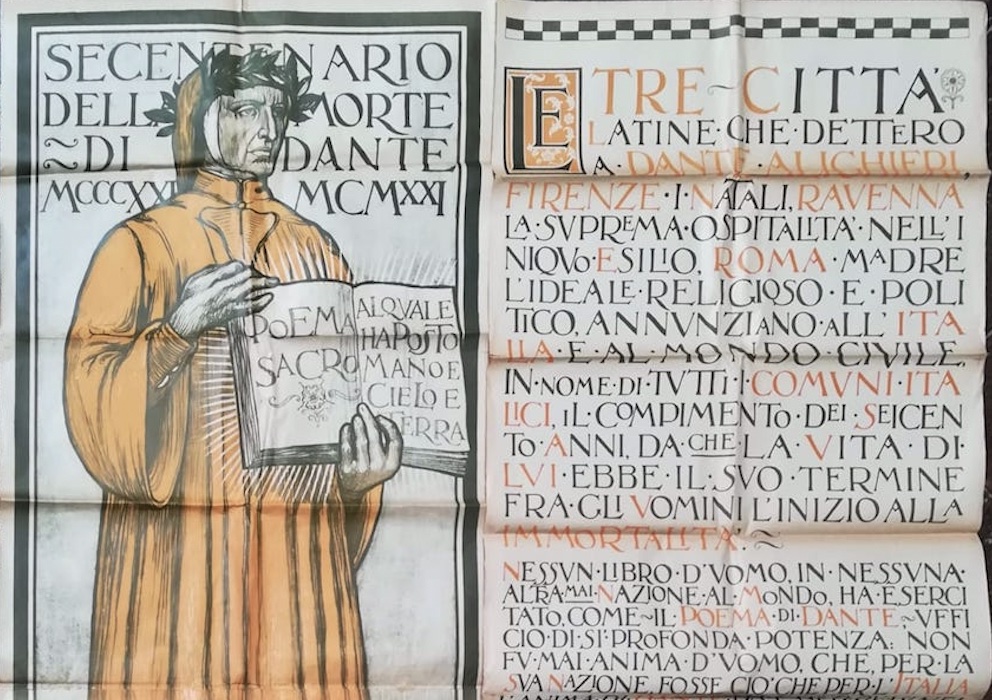 SECENTENARIO
DELLA MORTE
~DI DANTE
MCCCXXI MCMXXI
POEMA
SACRO
AL QVALE
HA POSTO
MANO E
CIELO E
TERRA
LE TRE~CITTÀ
LATINE·CHE·DETTERO
A·DANTE·ALIGHIERI,
FIRENZE·I·NATALI, RAVENNA
LA·SVPREMA·OSPITALITA·NELL'I
NIQVO·ESILIO, ROMA·MADRE
L'IDEALE·RELIGIOSO·E·POLI
TICO, ANNVNZIANO·ALL'ITA
LIA·E·AL·MONDO·CIVILE,
IN·NOME·DI·TVTTI·I·COMVNI·ITA
LICI, IL·COMPIMENTO·DEI·SEICEN
TO·ANNI, DA·CHE·LA·VITA·DI·
LVI·EBBE·IL·SVO·TERMINE
FRA·GLI·VOMINI L'INIZIO ALLA
IMMORTALITA'.~
NESSVN·LIBRO·D'VOMO, IN·NESSVNA·
ALTRA·MAI·NAZIONE·AL·MONDO, HA·ESERCI
TATO, COME~IL·POEMA·DI·DANTE,~VFFI
CIO·DI·SI'·PROFONDA·POTENZA: NON
FV·MAI·ANIMA·D'VOMO, CHE, PER·LA
SVA NAZIONE FOSSE CIO'·CHE·PER·L'ITALIA